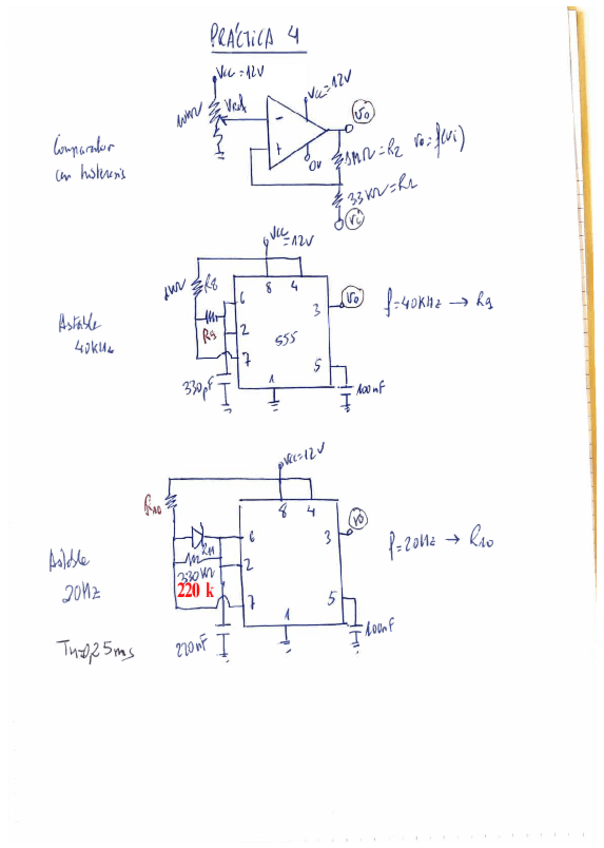 PRÁCTICA 4
Vcc=12V
Vcc=12V
Vref
-
vo
Comparador
con histéresis
+
0V
1MΩ=R2
vo=f(vi)
33KΩ=R1
vi
Vcc=12V
1KΩ
R8
8
4
6
3
vo
f=40KHz → R9
Astable
40KHz
R9
2
555
7
5
330pF
1
100nF
Vcc=12V
R10
8
4
R11
6
3
vo
f=20Hz → R10
Astable
2
330KΩ
220 k
20Hz
7
5
1
220nF
100nF
TH=0,25ms